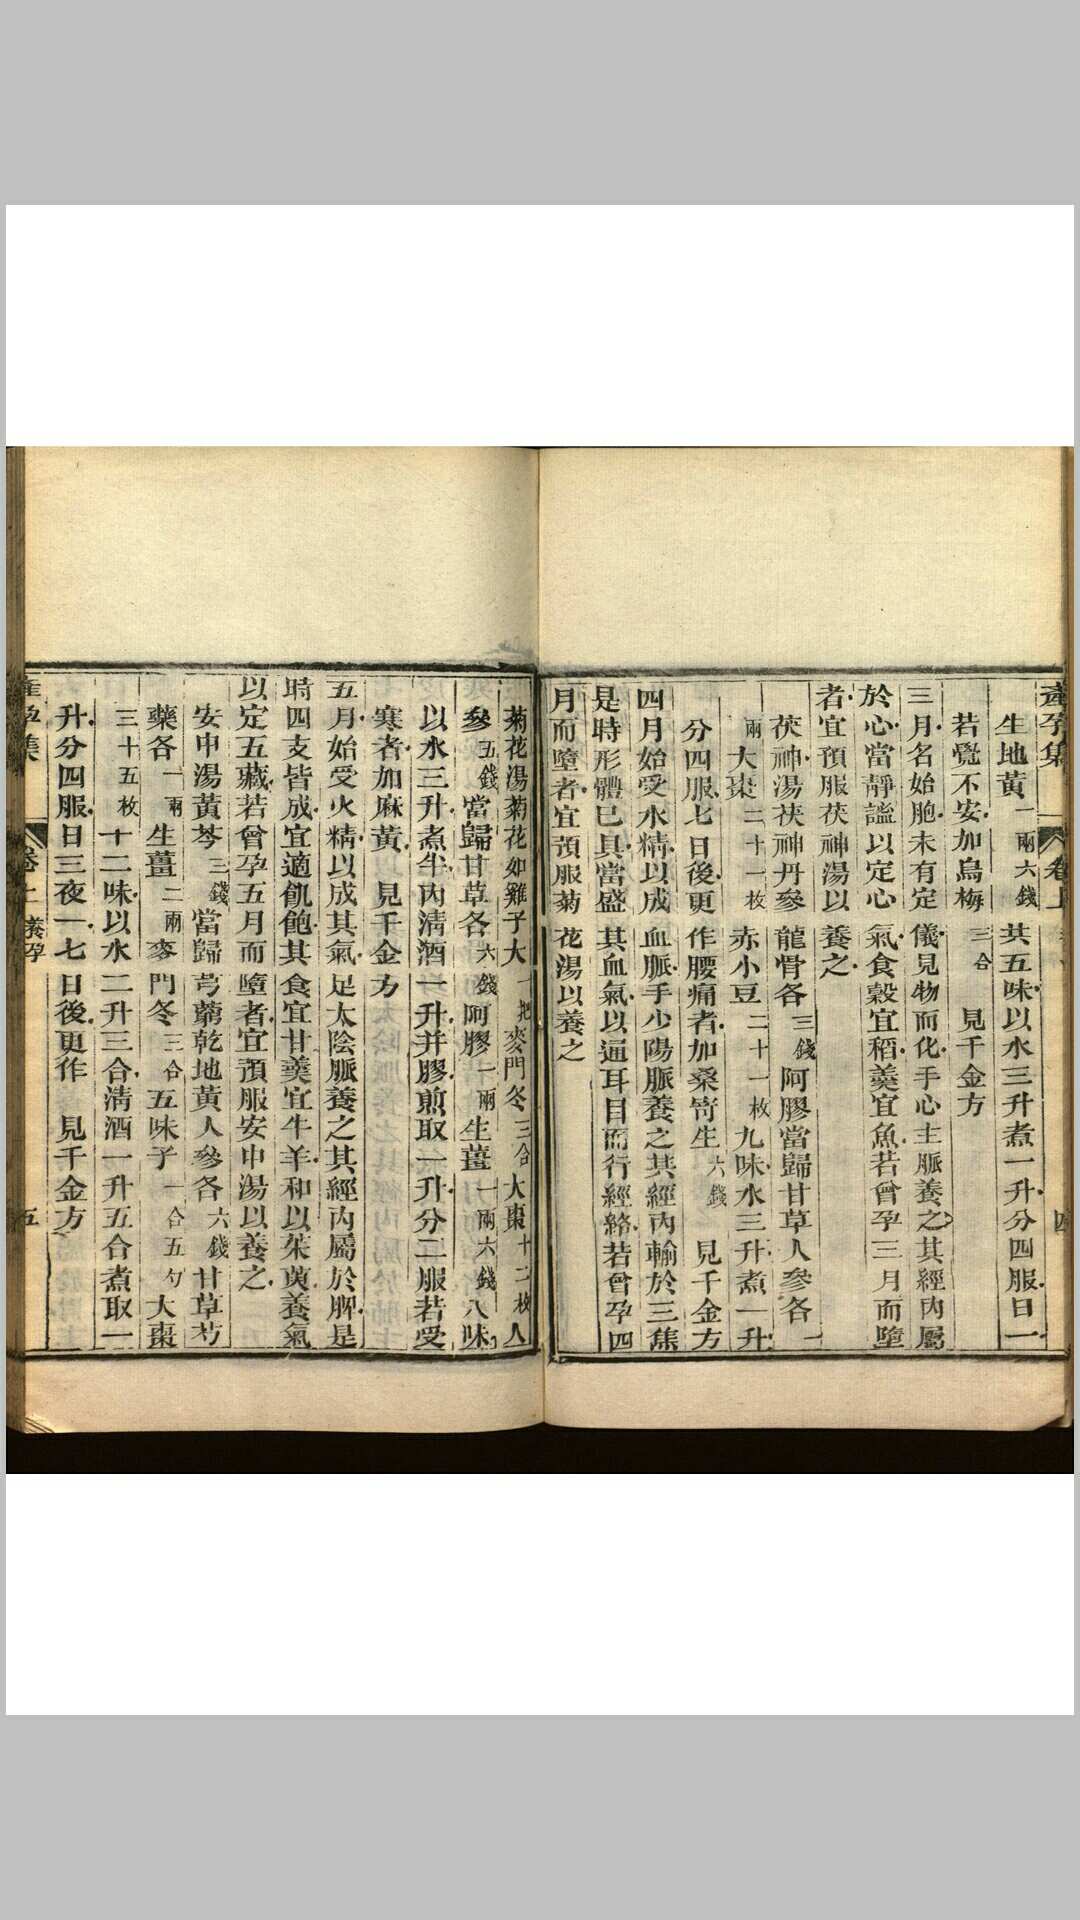 產孕集 卷上 四
生地黃一兩六錢 共五味以水三升煮一升分四服日一
若覺不安加烏梅三合 見千金方
三月名始胞未有定儀見物而化手心主脈養之其經內屬
於心當靜謐以定心氣食穀宜稻羹宜魚若曾孕三月而墮
者宜預服茯神湯以養之
茯神湯茯神丹參龍骨各三錢阿膠當歸甘草人參各一
兩大棗二十一枚赤小豆二十一枚九味水三升煮一升
分四服七日後更作腰痛者加桑寄生六錢 見千金方
四月始受水精以成血脈手少陽脈養之其經內輸於三焦
是時形體已具當盛其血氣以通耳目而行經絡若曾孕四
月而墮者宜預服菊花湯以養之
菊花湯菊花如雞子大一把麥門冬三合大棗十二枚人
參五錢當歸甘草各六錢阿膠一兩生薑一兩六錢八味
以水三升煮半內清酒一升并膠煎取一升分二服若受
寒者加麻黃 見千金方
五月始受火精以成其氣足太陰脈養之其經內屬於脾是
時四支皆成宜適飢飽其食宜甘羹宜牛羊和以茱萸養氣
以定五藏若曾孕五月而墮者宜預服安中湯以養之
安中湯黃芩三錢當歸芎藭乾地黃人參各六錢甘草芍
藥各一兩生薑二兩麥門冬三合五味子一合五勺大棗
三十五枚十二味以水二升三合清酒一升五合煮取一
升分四服日三夜一七日後更作 見千金方
產孕集 卷上 養孕 五